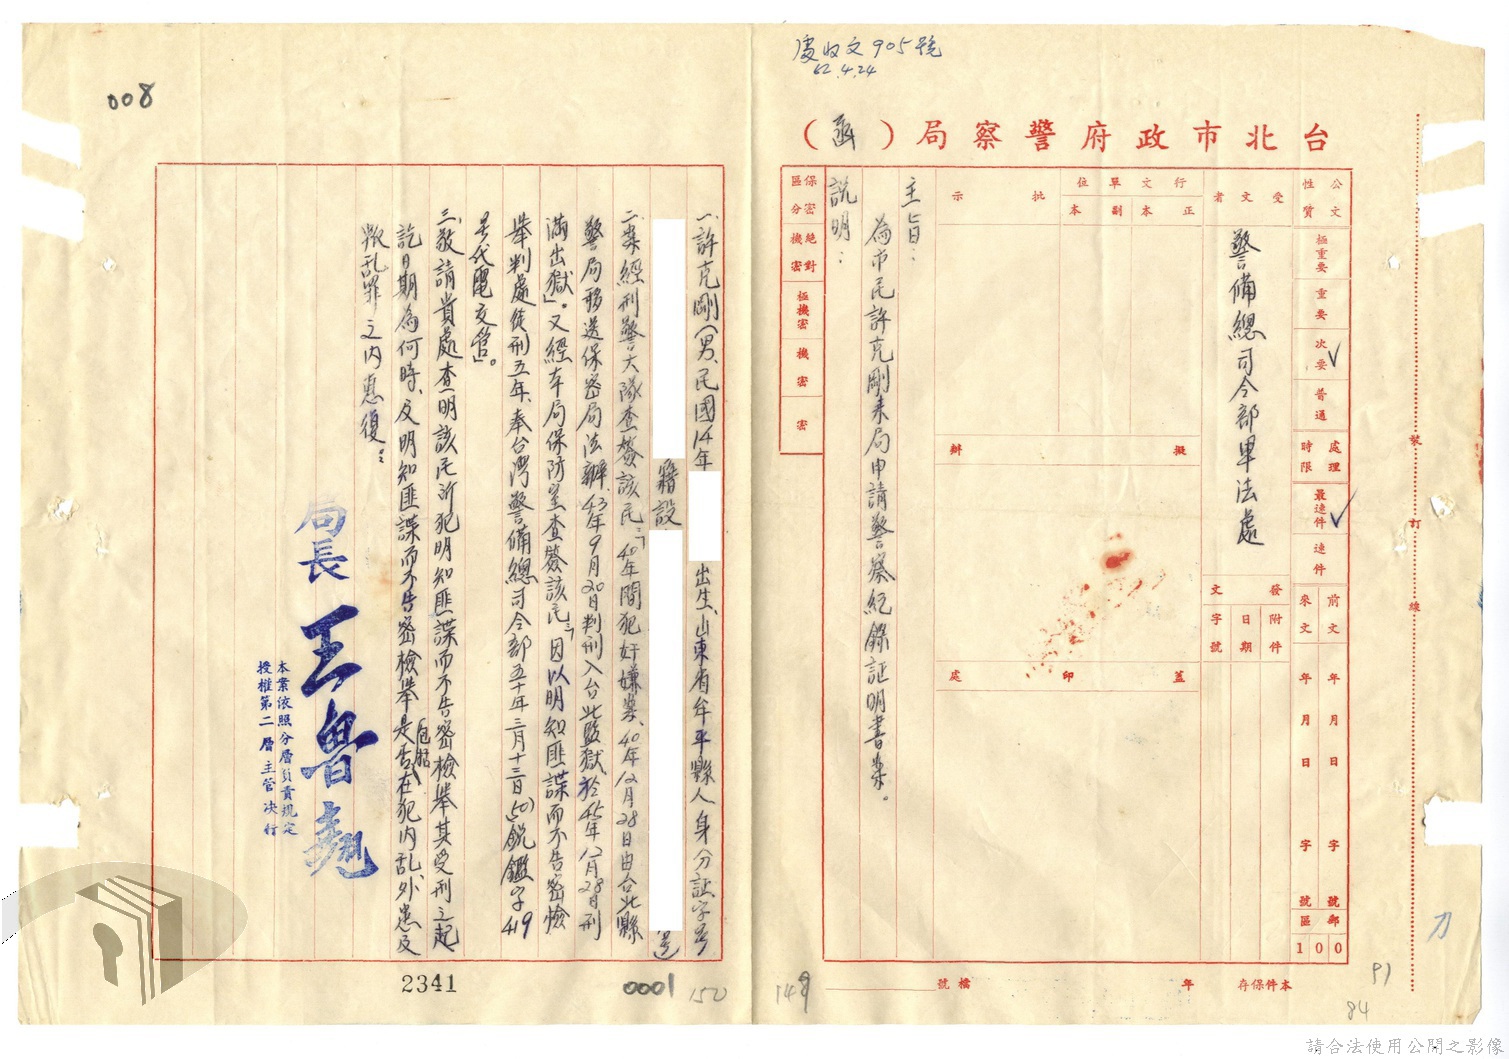 處收文905號
62.4.24
台北市政府警察局(函)
公文性質
極重要
重要
次要
普通
處理時限
最速件
速件
前文
年月日
字號
來文
年月日
字號
郵區
100
受文者
警備總司令部軍法處
發文
附件
日期
字號
行文單位
正本
副本
批示
擬辦
蓋印處
保密區分
絕對機密
極機密
機密
密
主旨:
為市民許克剛來局申請警察紀錄証明書案。
說明:
裝訂線
本件保存
年
檔號
149
81
84
008
一、許克剛(男、民國14年
出生、山東省牟平縣人身分証字号
籍設
号)
二、案經刑警大隊查簽該民:「40年間犯奸嫌案、40年12月28日由台北縣
警局移送保密局法辦、43年9月20日判刑入台北監獄、於45年12月28日刑
滿出獄」。又經本局保防室查簽該民:「因以明知匪諜而不告密檢
舉判處徒刑五年、奉台灣警備總司令部五十年三月十三日(50)銳鑑字419
号代電交管」。
三、敬請貴處查明該民所犯明知匪諜而不告密檢舉其受刑之起
訖日期為何時、及明知匪諜而不告密檢舉是否包括在犯內乱、外患及
叛乱罪之內惠復。
局長 王魯翹
本案依照分層負責規定
授權第二層主管決行
2341
0001
150
請合法使用公開之影像